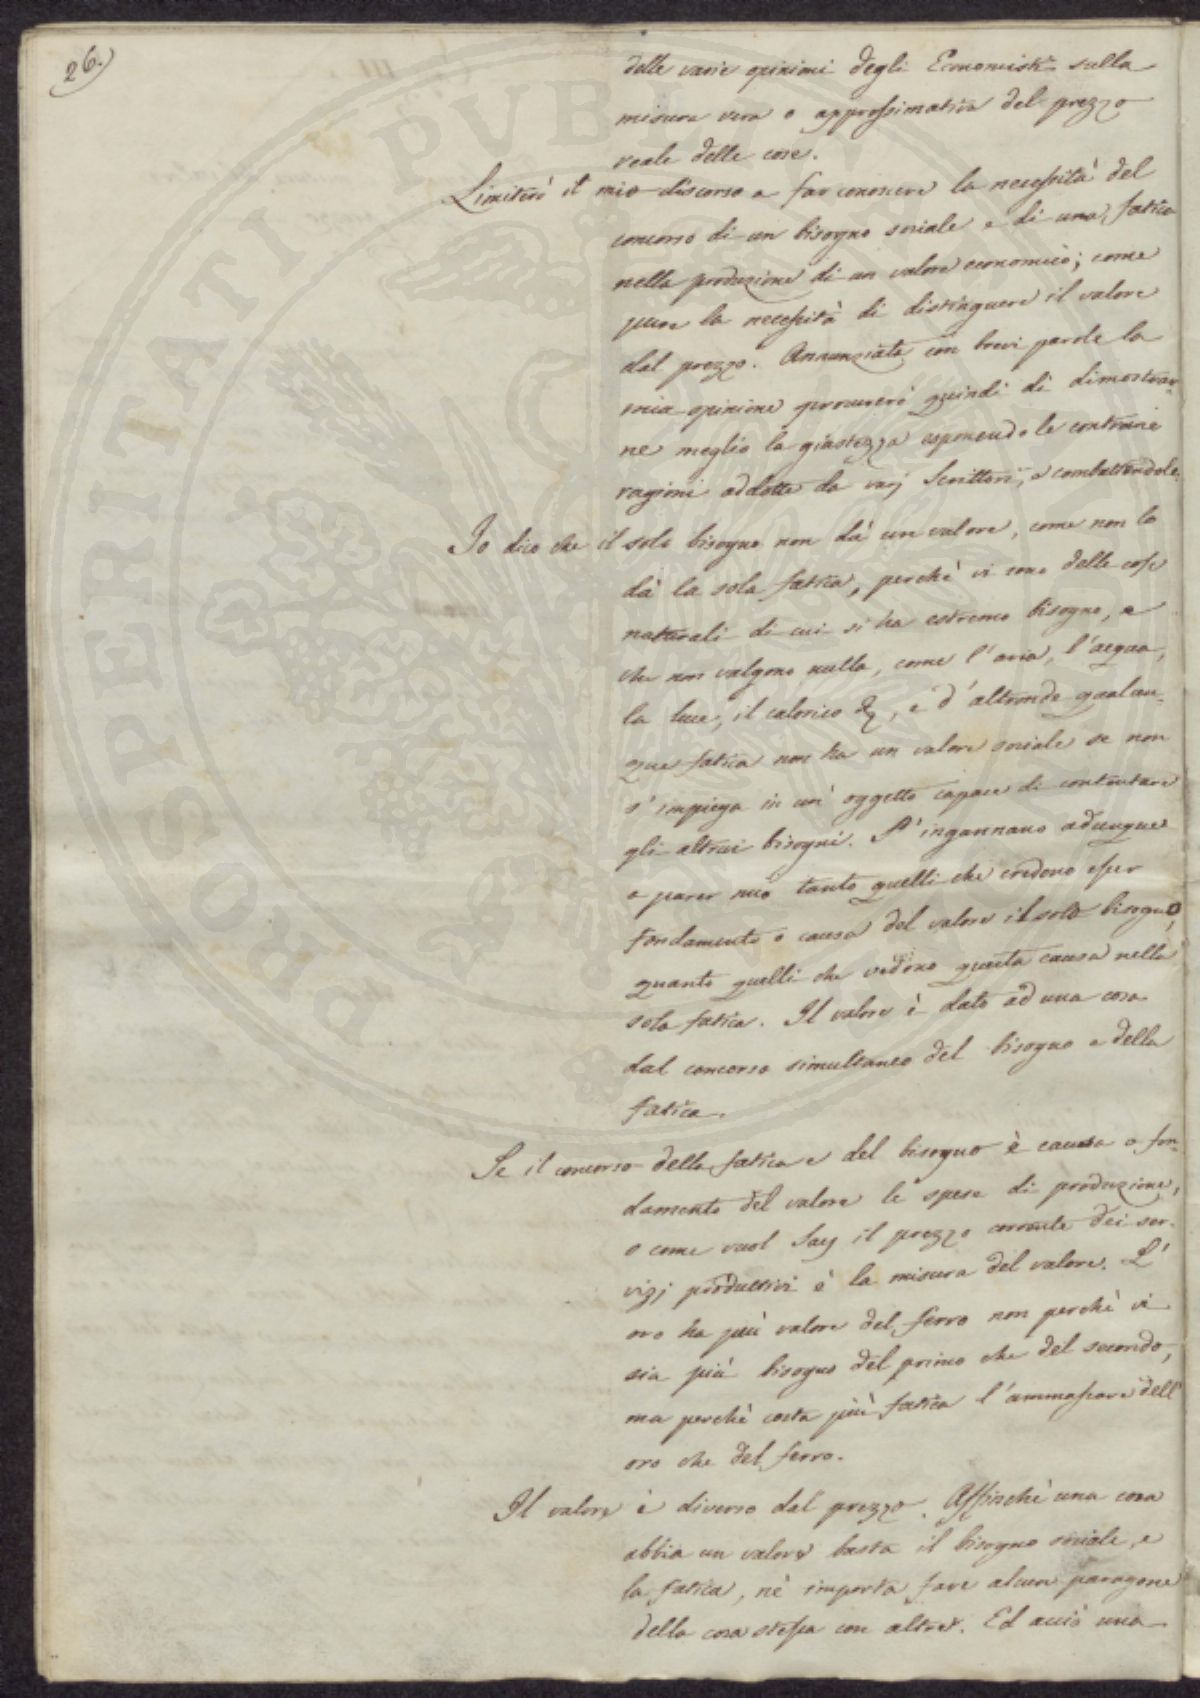 26.
delle varie opinioni degli Economisti sulla
misura vera o approssimativa del prezzo
reale delle cose.
Limiterò il mio discorso a far conoscere la necessità del
concorso di un bisogno sociale e di una fatica
nella produzione di un valore economico; come
pure la necessità di distinguere il valore
dal prezzo. Annunziata con brevi parole la
mia opinione procurerò quindi di dimostrar-
ne meglio la giustezza esponendo le contrarie
ragioni addotte da varj Scrittori, e combattendole.
Io dico che il solo bisogno non dà un valore, come non lo
dà la sola fatica, perchè vi sono delle cose
naturali di cui si ha estremo bisogno, e
che non valgono nulla, come l'aria, l'acqua,
la luce, il calorico &, e d'altronde qualun-
que fatica non ha un valore sociale se non
s'impiega in un' oggetto capace di contentare
gli altrui bisogni. S'ingannano adunque
a parer mio tanto quelli che credono esser
fondamento o causa del valore il solo bisogno,
quanto quelli che vedono questa causa nella
sola fatica. Il valore è dato ad una cosa
dal concorso simultaneo del bisogno e della
fatica.
Se il concorso della fatica e del bisogno è causa o fon-
damento del valore le spese di produzione,
o come vuol Say il prezzo corrente dei ser-
vizj produttivi è la misura del valore. L'
oro ha più valore del ferro non perchè vi
sia più bisogno del primo che del secondo,
ma perchè costa più fatica l'ammassare dell'
oro che del ferro.
Il valore è diverso dal prezzo. Affinchè una cosa
abbia un valore basta il bisogno sociale, e
la fatica, nè importa fare alcun paragone
della cosa stessa con altre. Ed acciò una
PROSPERITATI PVBLICAE